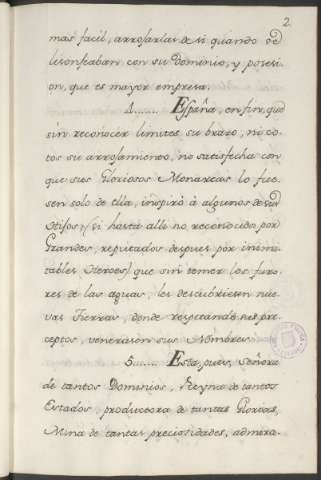 2.
mas facil, arrojarlas de si quando se
lisonjeaban con su Dominio, y posesi-
on, que es mayor empresa.
4....... España, en fin, que
sin reconocer limites su brazo, ni co-
tos su arrojamiento, no satisfecha con
que sus Gloriosos Monarcas lo fue-
sen solo de ella, inspiró à algunos de sus
hijos, (si hasta alli no reconocidos por
Grandes, reputados despues por inimi-
tables Heroes) que sin temor los furo-
res de las aguas, les descubriesen nue-
vas Tierras, donde respetando sus pre-
ceptos, venerasen sus Nombres.
5...... Esta, pues, Señora
de tantos Dominios, Reyna de tantos
Estados, productora de tantas Glorias,
Mina de tantas preciosidades, admira-